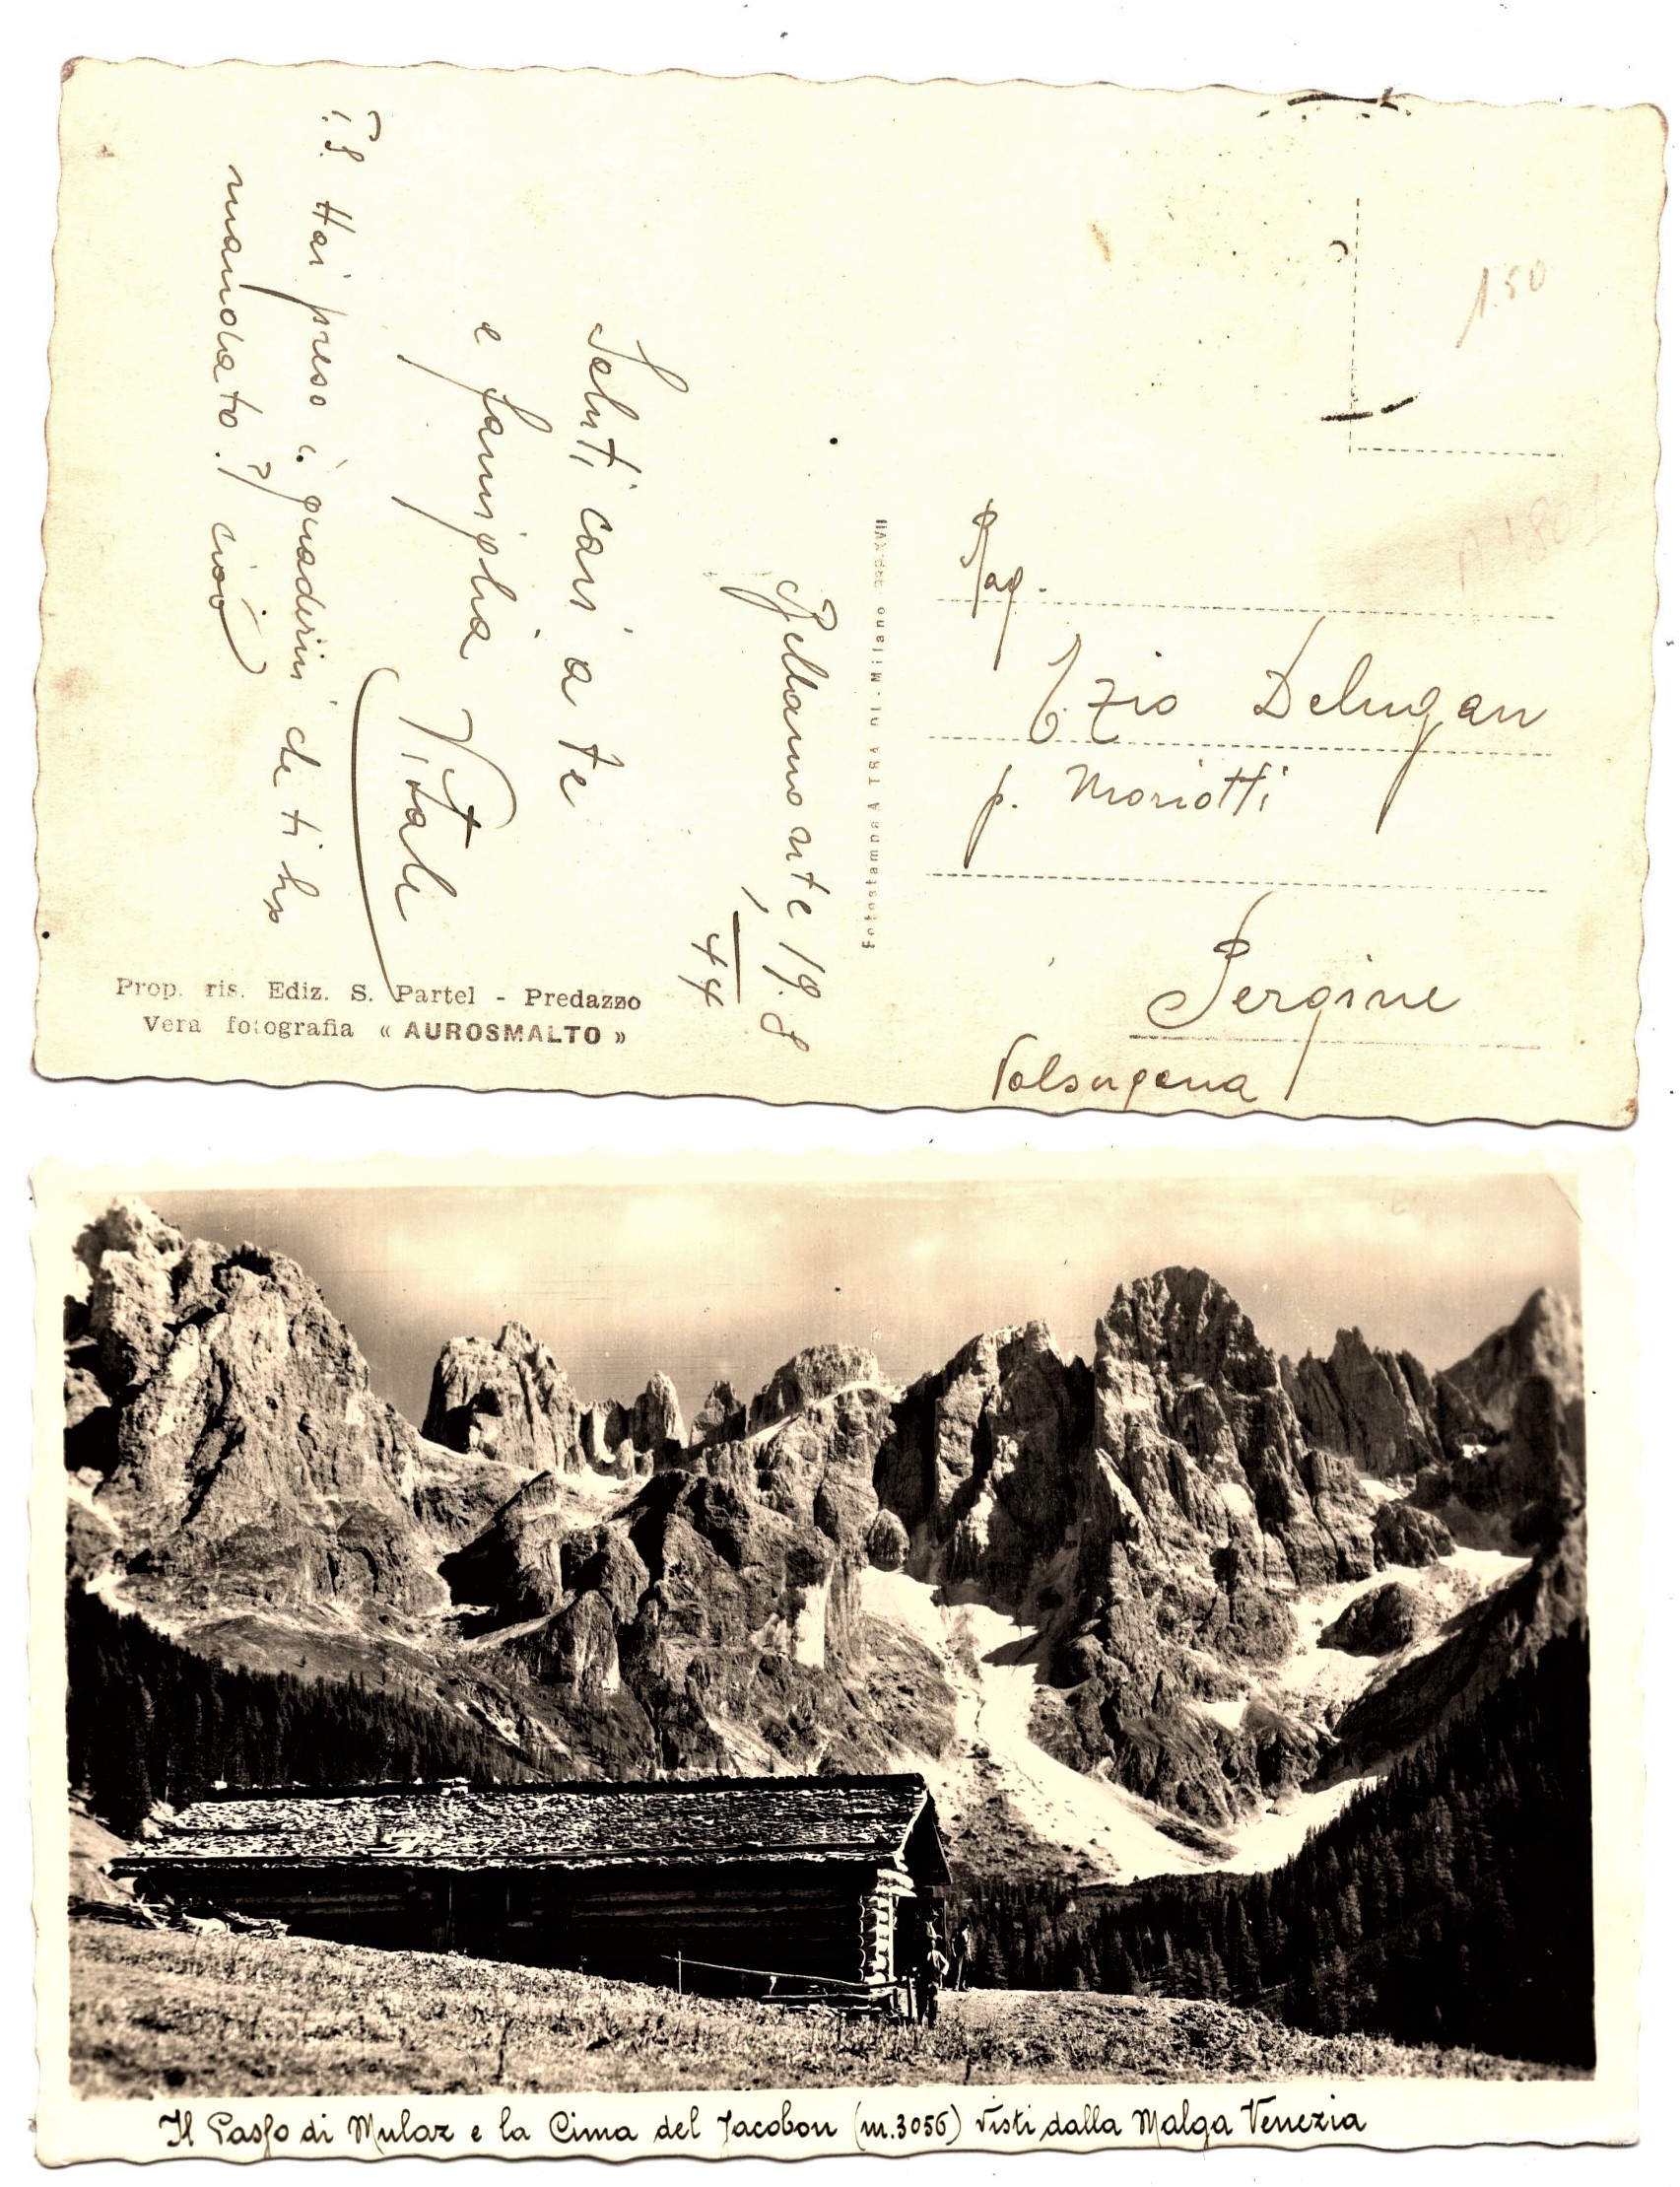 Bellamonte, 19.8
44
Saluti cari a te
e famiglia
Vitale
P.S. Hai preso i quaderni che ti ho
mandato? ciao
Prop. ris. Ediz. S. Partel - Predazzo
Vera fotografia « AUROSMALTO »
Fotostampa A TRA DI - Milano XVII
1.50
Rag.
Ezio Delugan
p. Mariotti
Pergine
Valsugana
Il Passo di Mulaz e la Cima del Jacobon (m. 3056) visti dalla Malga Venezia